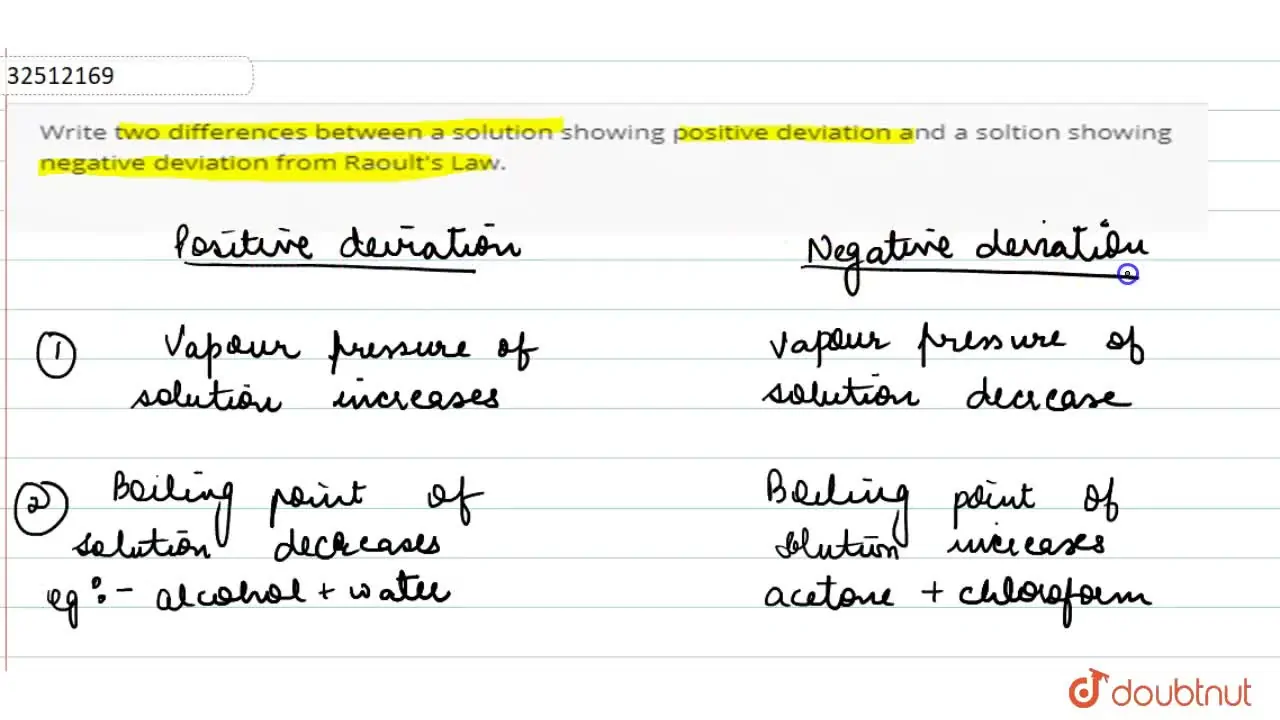 32512169
Write two differences between a solution showing positive deviation and a soltion showing
negative deviation from Raoult's Law.
Positive deviation Negative deviation
① Vapour pressure of vapour pressure of
solution increases solution decrease
② Boiling point of Boiling point of
solution decreases solution increases
eg :- alcohol + water acetone + chloroform
doubtnut